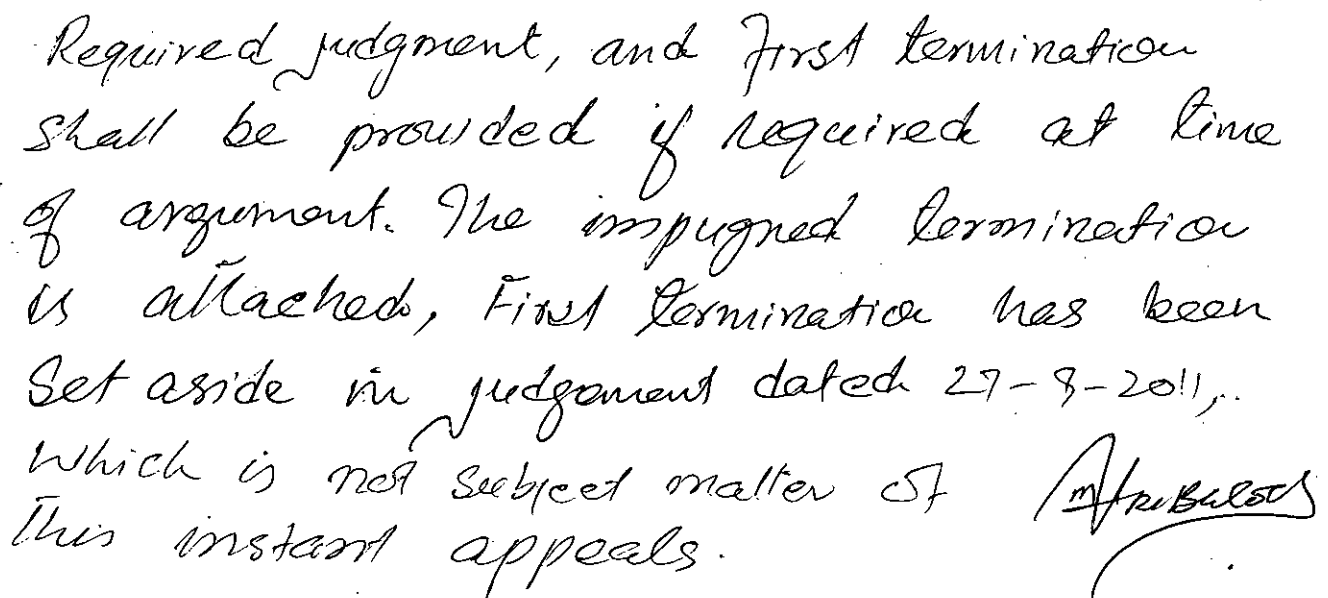 Required judgment, and First termination
shall be provided if required at time
of argument. The impugned termination
is attached, First termination has been
Set aside in judgement dated 27-8-2011,
which is not subject matter of
This instant appeals.